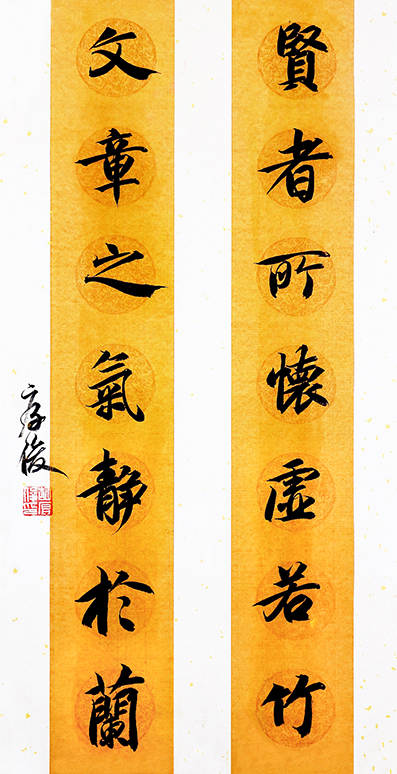 賢者所懷虛若竹
文章之氣靜於蘭